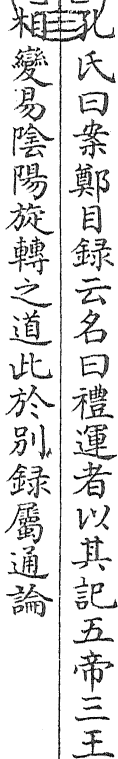 孔氏曰案鄭目録云名曰禮運者以其記五帝三王
相變易陰陽旋轉之道此於别録屬通論